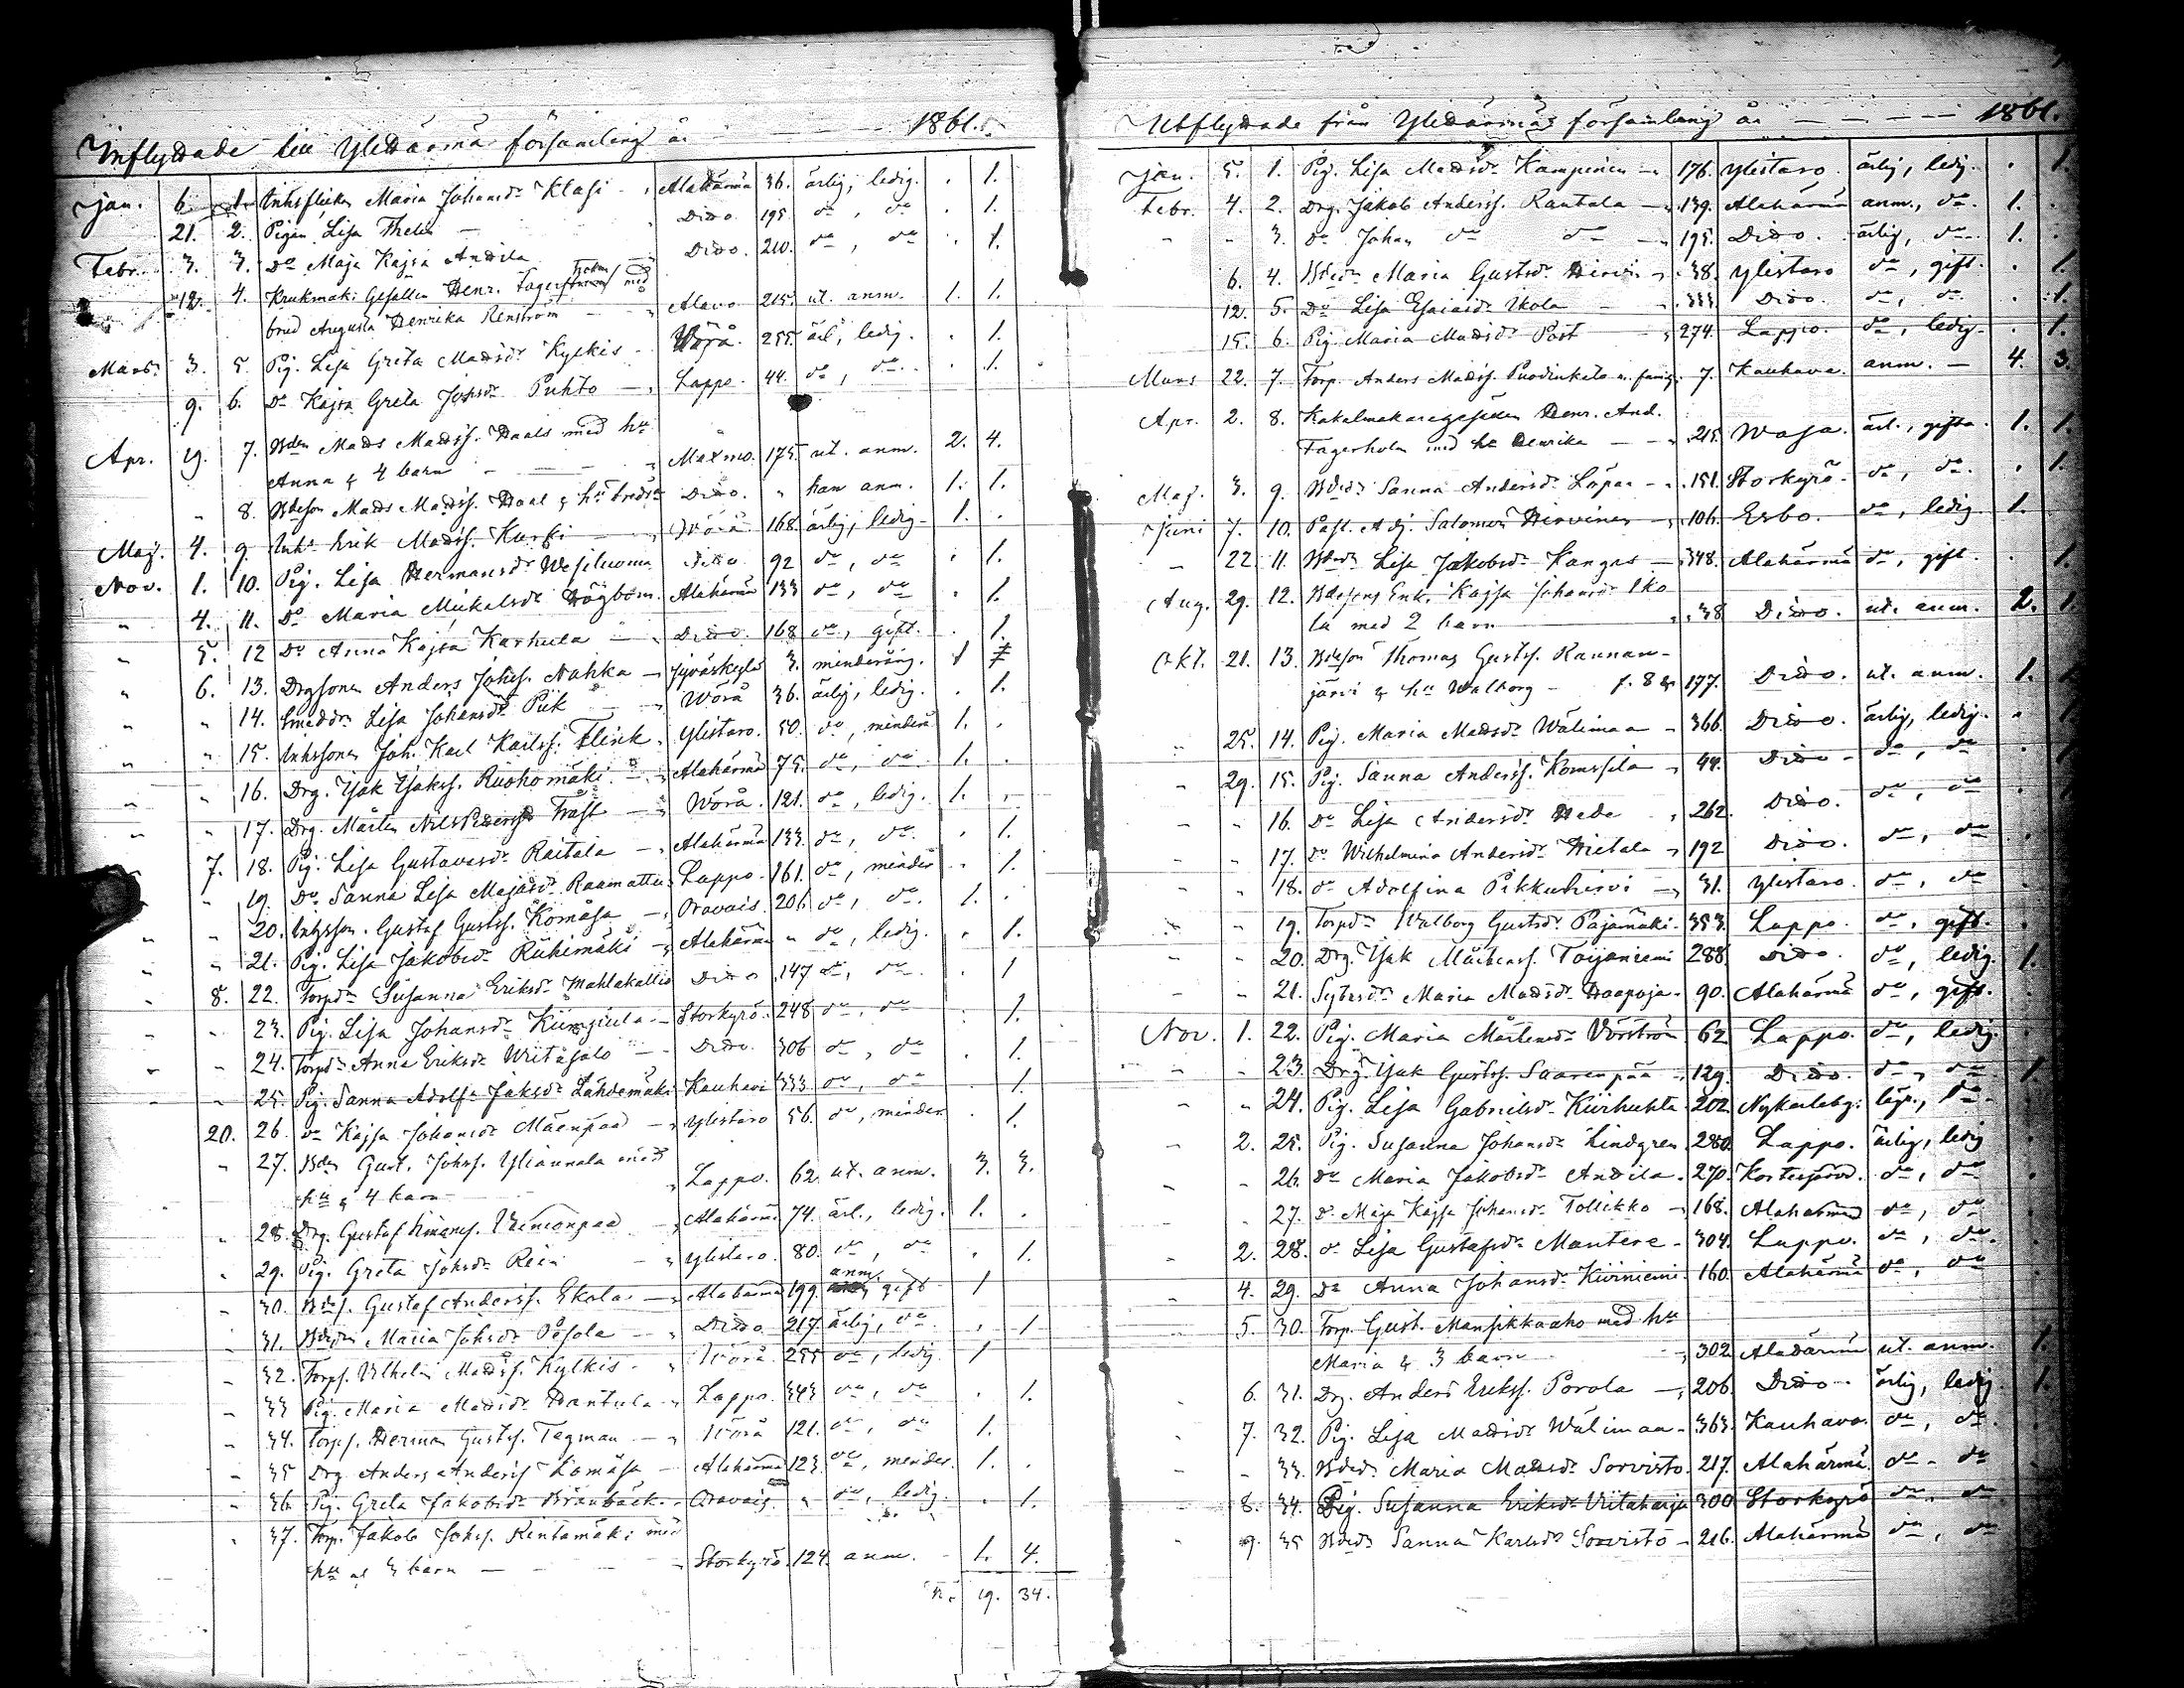 Inflyttade till Ylihärmä församling år 1861.
Jan. 6. 1. Inhsflickan Maria Johansdr Klasi Alahärmä 36. ärlig, ledig. . 1.
21. 2. Pigan Lisa Thelen Dito. 195. do, do . 1.
Febr. 3. 3. Do Maja Kajsa Andila Dito. 210. do, do . 1.
12. 4. Krukmak. Gesällen Henr. Fagerholm med
brud Augusta Henrika Renström Alavo 215. ut. anm. 1. 1.
Mars 3. 5. Pig. Lisa Greta Madsdr Kylkis Wörå 255. ärl, ledig. . 1.
9. 6. Do Kajsa Greta Johsdr Puhto Lappo. 44. do, do . 1.
Apr. 19. 7. Bden Mads Madss. Haals med hu
Anna & 4 barn Maxmo. 175. ut. anm. 2. 4.
" 8. Bdeson Mads Madss. Haal & hu Dito. " han anm. 1. 1.
Maj. 4. 9. Inhs Erik Madss. Kurki Wörå 168. ärlig, ledig. 1. .
Nov. 1. 10. Pig. Lisa Hermansdr Wesiluoma Dito 92 do, do . 1.
" 4. 11. Do Maria Mickelsdr Högbom. Alahärmä 133 do, do . 1.
" 5. 12 Do Anna Kajsa Karhula Dito. 168 do, gift. . 1.
" 6. 13. Drgsonen Anders Johss. Nahka Jyväskylä 3. minderårig. 1
" " 14. Smeddr Lisa Johansdr Piik Wörå 36. ärlig, ledig. . 1.
" " 15. Inhssonen Joh. Karl Karlss. Flink Ylistaro. 50. do, minderå 1. .
" " 16. Drg. Isak Isakss. Ruohomäki Alahärmä 75. do, do 1. .
" " 17. Drg. Mårten Nils Pederss Fråst Wörå. 121. do, ledig. 1. .
" 7. 18. Pig. Lisa Gustavsdr Raitala Alahärmä 133. do, do. . 1.
" 19. Do Sanna Lisa Majasdr Raamattu Lappo. 161. do, minder . 1.
" " 20. Inhsson. Gustaf Gustss. Komåsa Oravais. 206 do, do. 1. .
" " 21. Pig. Lisa Jakobsdr Riihimäki Alahärmä " do, ledig. . 1.
" 8. 22. Torpdr Susanna Eriksdr Mahlakallio Dito 147 do, do. . 1
" " 23. Pig. Lisa Johansdr Storkyrö. 248 do, do . 1.
" " 24. Torpdr Anna Eriksdr Wiitasalo Dito. 306 do, do . 1.
" " 25. Pig. Sanna Adolfa Jaksdr Lähdemäki Kauhava 333. do, do . 1.
20. 26. Do Kajsa Johansdr Mäenpää Ylistaro 56. do, minder. . 1.
" 27. Bden Gust. Johss. Yliannala med
hu & 4 barn Lappo. 62. ut. anm. 3. 3.
" 28. Drg. Gustaf Vänionpää Alahärmä 74. ärl., ledig. 1. .
" 29. Pig. Greta Johsdr Rein Ylistaro. 80. do, do . 1.
" 30. Bds. Gustaf Anderss. Ekola Alahärmä 199. anm. gift 1
" 31. Bdedr Maria Johsdr Pesola Dito 217 ärlig, do . 1
" 32. Torps. Vilhelm Madss. Kylkis Wörå 255 do, ledig. 1
" 33 Pig. Maria Madsdr Hantula Lappo. 343 do, do . 1.
" 34. Torps. Herman Gusts. Tegman Wörå 121. do, do 1.
" 35 Drg Anders Anderss Komåsa Alahärmä 123. do, minder. 1. .
" 36. Pig. Greta Jakobsdr Bränbäck Oravais. " do, ledig. . 1.
" 37. Torp. Jakob Johss. Rintamäki med
hu o 3 barn Storkyrö. 124. anm. 1. 4.
19. 34.
Utflyttade från Ylihärmä församling år 1861.
Jan. 5. 1. Pig. Lisa Madsdr Kampinen 176. Ylistaro. ärlig, ledig. . 1.
Febr. 4. 2. Drg. Jakob Anderss. Rantala 139. Alahärmä anm., do. 1. .
" " 3. Do Johan do do 195. Dito. ärlig, do. 1. .
6. 4. Bdedr Maria Gustsdr Hirvi 38. Ylistaro do, gift. . 1.
12. 5. Do Lisa Esaiasdr Ikola 333. Dito. do, do. . 1.
15. 6. Pig Maria Madsdr Post 274. Lappo. do, ledig. . 1.
Mars 22. 7. Torp. Anders Madss. Puodinkato m. famij. 7. Kauhava. anm. 4. 3.
Apr. 2. 8. Kakelmakaregesällen Henr. And.
Fagerholm med hu Henrika 215. Wasa. ärl., gifta. 1. 1.
Maj. 3. 9. Bdedr Sanna Andersdr Lopaa 151. Storkyrö. do, do. . 1.
Juni 7. 10. Past. Adj. Salomon Hirvinen 106. Esbo. do, ledig. 1.
" 22. 11. Bdedr Lisa Jakobsdr Kangas 348. Alahärmä do, gift. . 1.
Aug. 29. 12. Bdesons Enk. Kajsa Johansdr Iko
la med 2 barn 38 Dito. ut. anm. 2. 1.
Okt. 21. 13. Bdeson Thomas Gustss. Rannan-
järvi & hu Walborg 177. Dito. ut. anm. 1. 1
" 25. 14. Pig. Maria Madsdr Wälimaa 366. Dito. ärlig, ledig. . 1
" 29. 15. Pig. Sanna Anderss. Komssila 44. Dito do, do . 1
" " 16. Do Lisa Andersdr Hede 262. Dito. do, do
" " 17. Do Wilhelmina Andersdr Hietala 192 Dito. do, do .
" " 18. do Adolfina Pikkuhirvi 31. Ylistaro. do, do .
" " 19. Torpdr Walborg Gustsdr Pajamäki. 353. Lappo. do, gift. .
" " 20. Drg. Isak Mårtenss. Toijaniemi 288. Dito. do, ledig. 1.
" " 21. Sytesdr Maria Madsdr Haapoja. 90. Alahärmä do, gift.
Nov. 1. 22. Pig. Maria Mårtensdr 62 Lappo. do, ledig. .
" " 23. Drg. Isak Gustss. Saarenpää 129. Dito. do, do 1
" " 24. Pig. Lisa Gabrielsdr Kiirhukta 202. Nykarleby. do.
" 2. 25. Pig. Susanna Johansdr Lindgren 280. Lappo. ärlig, ledig
" " 26. do Maria Jakobsdr Andila. 270. Kortesjärvi. do, do .
" " 27. do Maja Kajsa Johansdr Tollikko 168. Alahärmä do, do .
" 2. 28. do Lisa Gustafsdr Mantere 304. Lappo. do, do. .
" 4. 29. Do Anna Johansdr Kiviniemi 160. Alahärmä do, do .
" 5. 30. Torp. Gust. Mansikkaaho med hu
Maria & 3 barn 302 Alahärmä ut. anm. 1.
" 6. 31. Drg. Anders Erikss. Porola 206. Dito. ärlig, ledig. 1.
" 7. 32. Pig. Lisa Madsdr Wälimaa 363. Kauhava. do, do. .
" " 33. Bdedr Maria Madsdr Sorvisto. 217. Alahärmä. do, do
" 8. 34. Pig. Susanna Eriksdr Viitaharju 300 Storkyrö do, do
" 9. 35 Bdedr Sanna Karlsdr Sorvisto 216. Alahärmä do, do